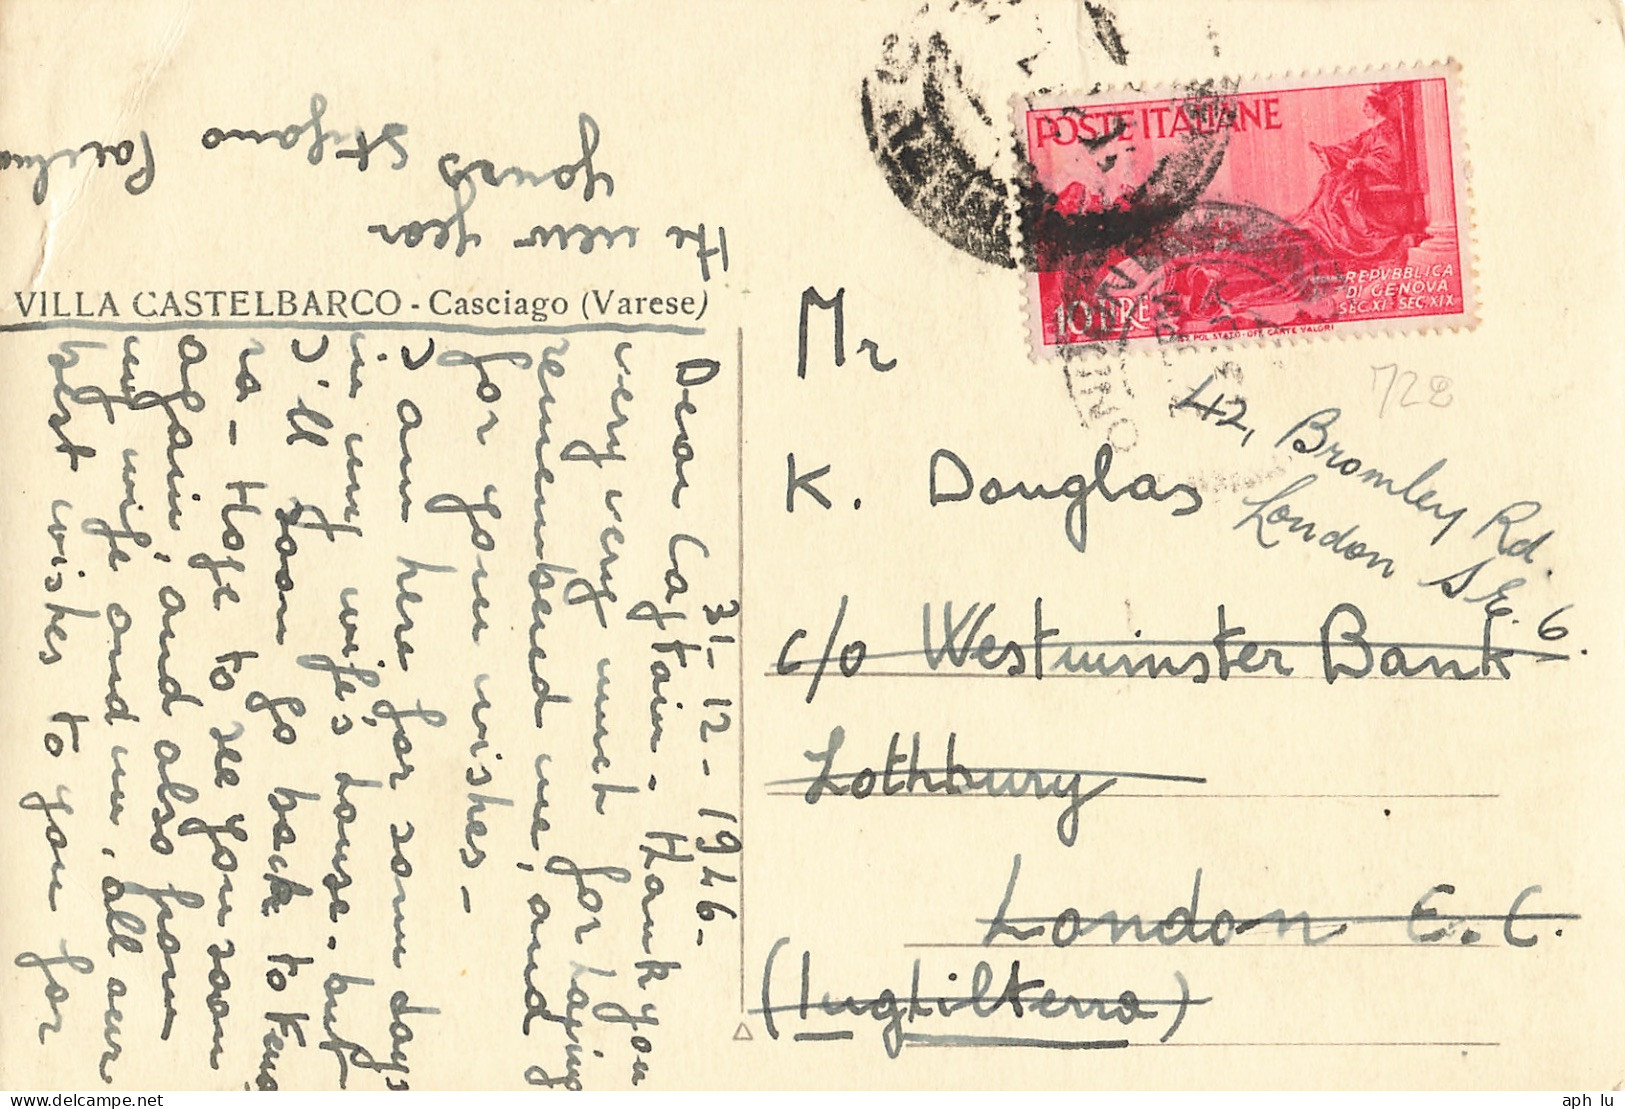 VILLA CASTELBARCO - Casciago (Varese)
31-12-1946-
Dear Captain - Thank you
very very much for having
remembered me, and
for your wishes -
I am here for some days
in my wife's house - but
I'll soon go back to
ra - Hope to see you soon
again, and also from
my wife and me, all our
best wishes to you for
the new year
yours
Stefano
POSTE ITALIANE
REPVBBLICA
DI GENOVA
SEC. XI - SEC. XIX
10 LIRE
IST. POL. STATO - OFF. CARTE VALORI
728
Mr
K. Douglas
42, Bromley Rd.
London S.E. 6.
c/o Westminster Bank
Lothbury
London E.C.
(Inghilterra)
aph lu